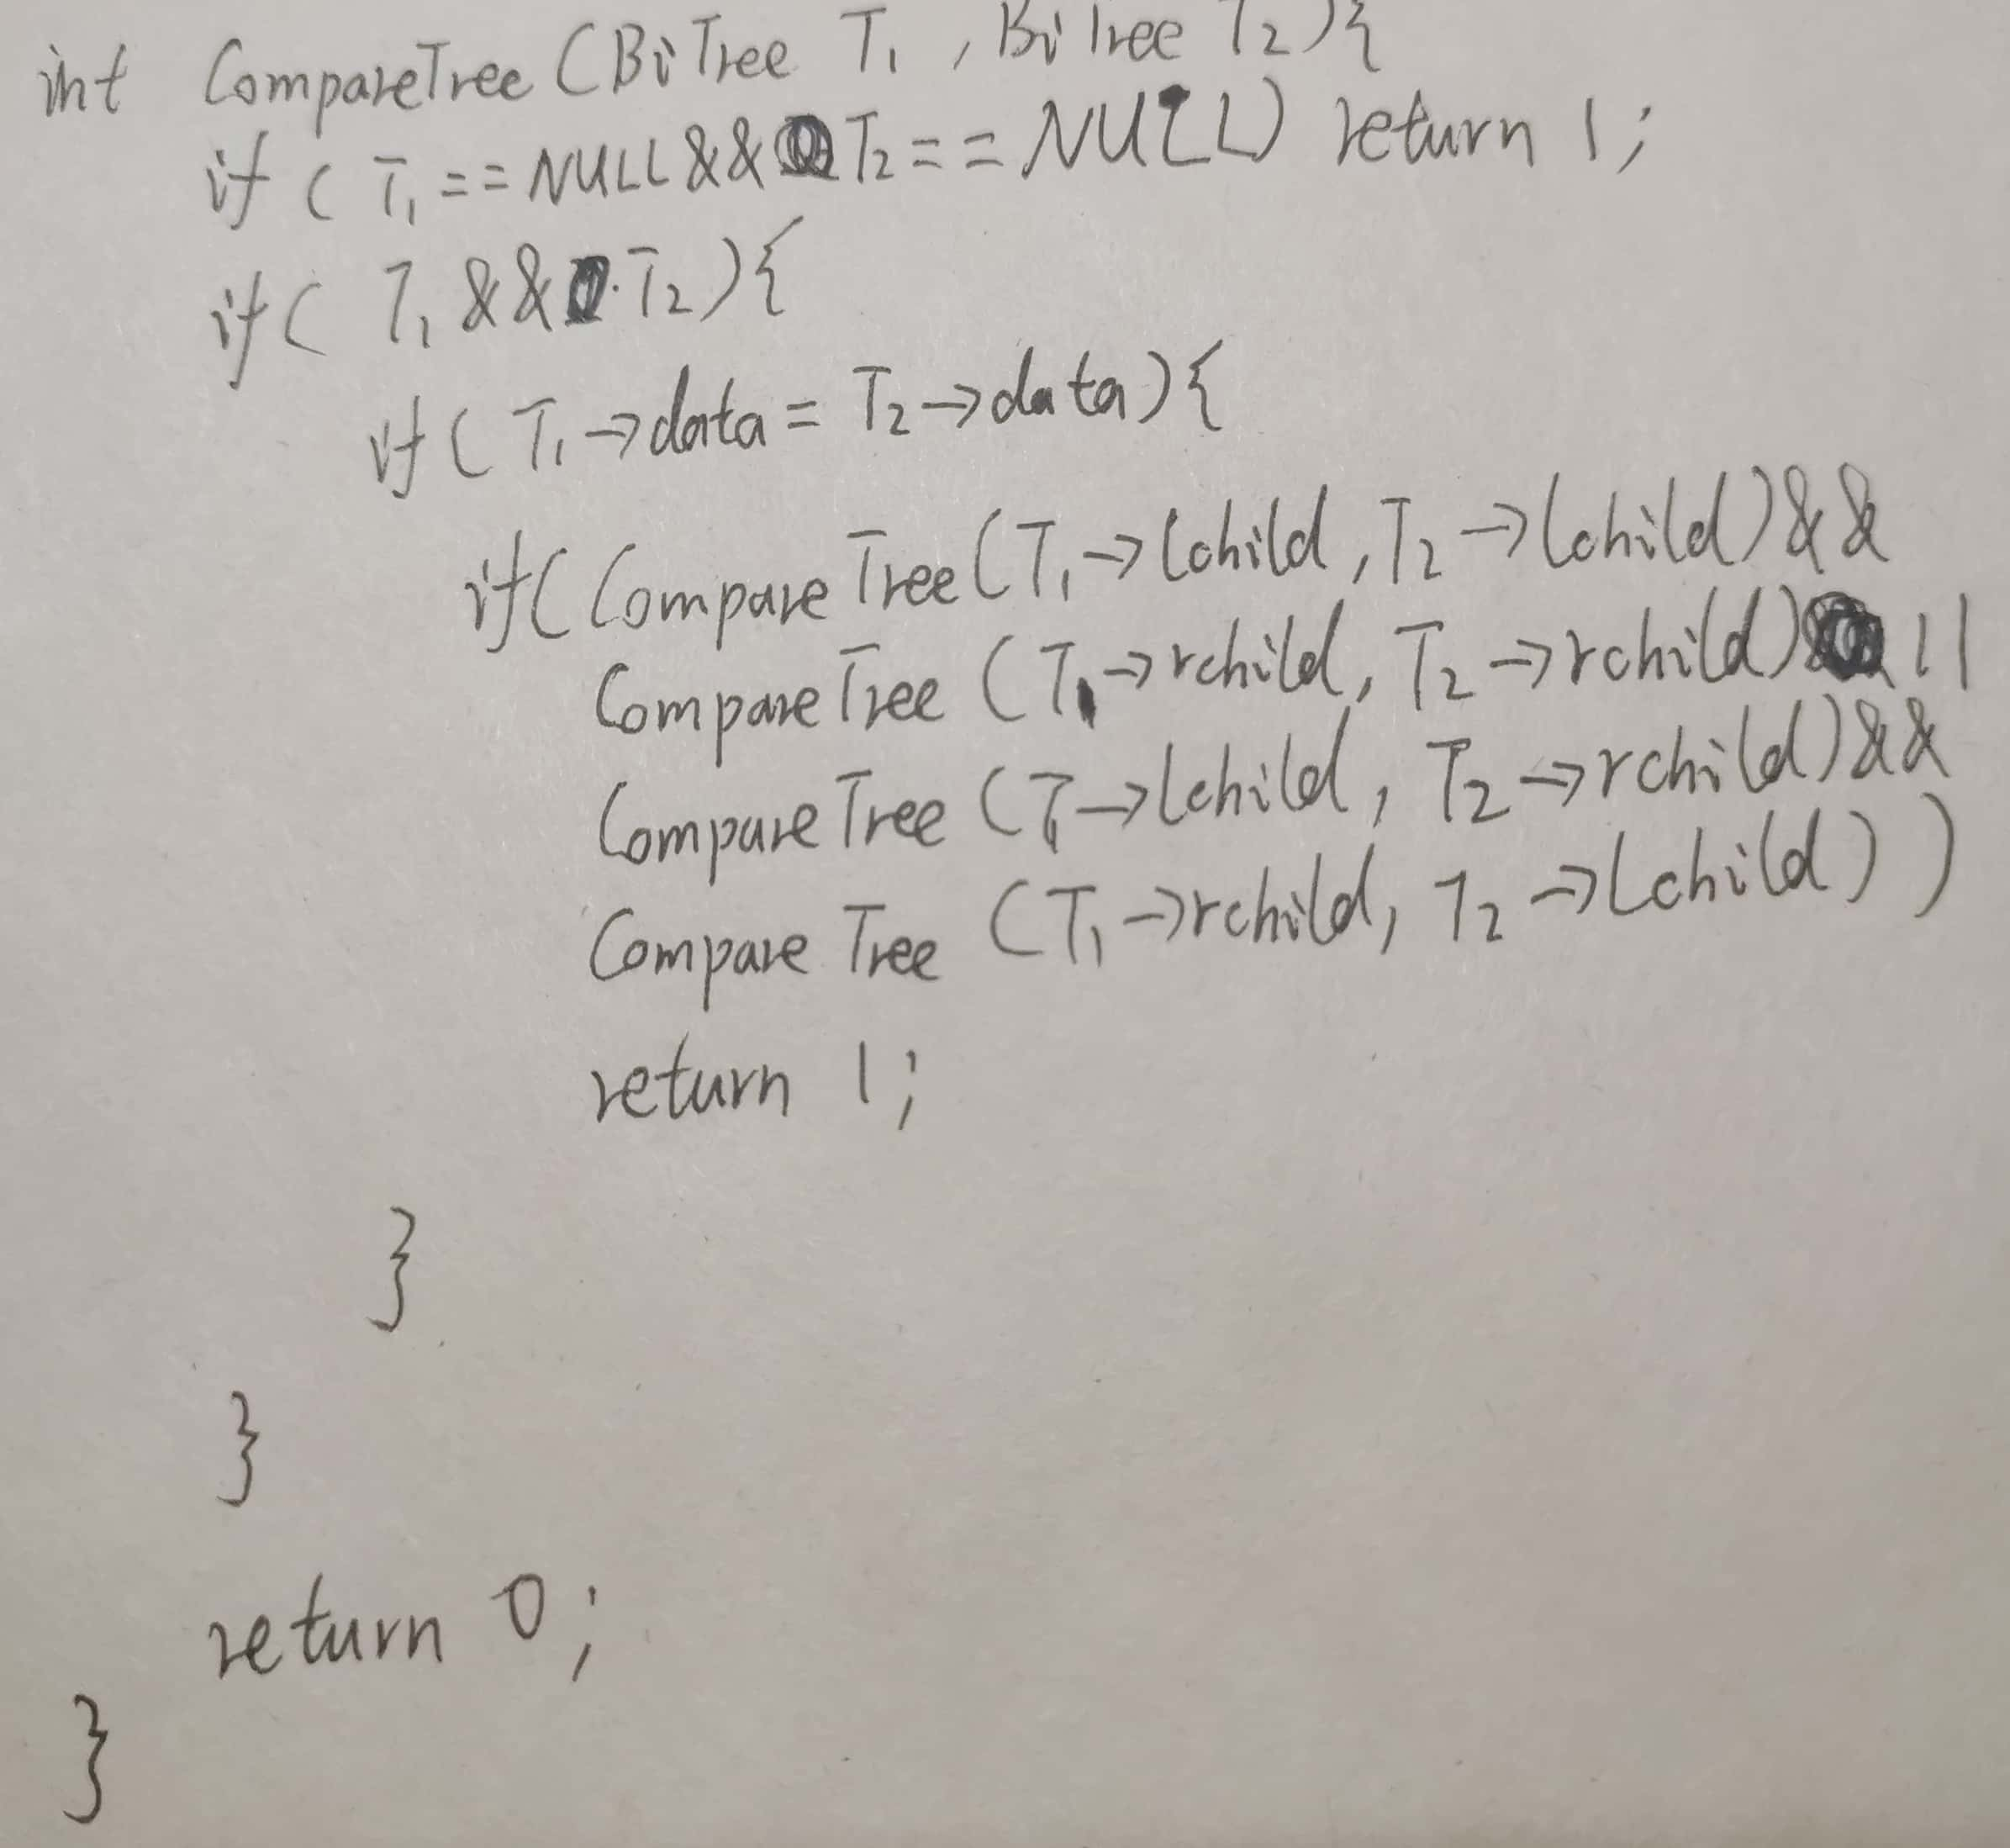 int CompareTree (BiTree T1 , BiTree T2){
if ( T1 ==NULL && T2 == NULL) return 1;
if ( T1 && T2){
if ( T1→data = T2→data){
if( CompareTree(T1→lchild, T2→lchild) &&
CompareTree (T1→rchild, T2→rchild) ||
CompareTree (T1→lchild, T2→rchild) &&
CompareTree (T1→rchild, T2→lchild) )
return 1;
}
}
return 0;
}